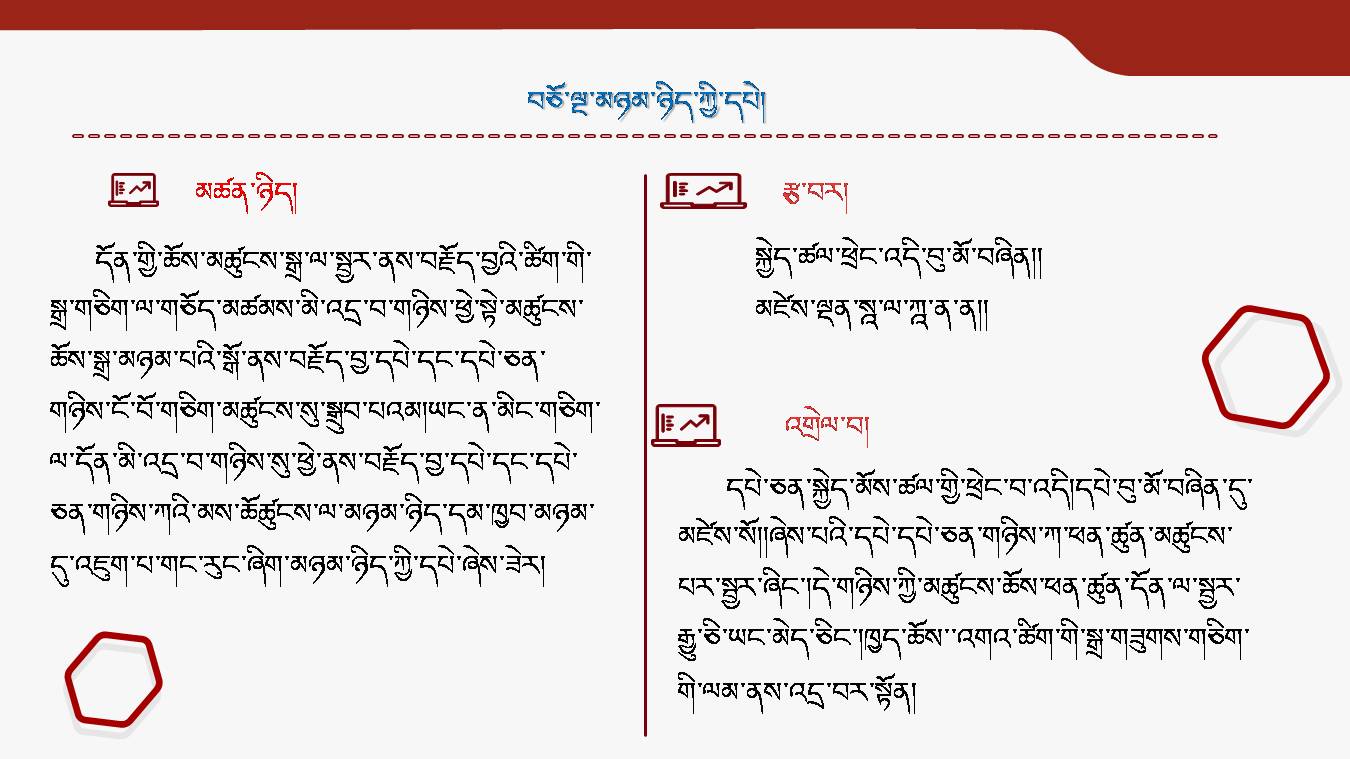 བཅོ་ལྔ་མཉམ་ཉིད་ཀྱི་དཔེ།
མཚན་ཉིད།
དོན་གྱི་ཆོས་མཚུངས་སྒྲ་ལ་སྦྱར་ནས་བརྗོད་བྱའི་ཚིག་གི་
སྒྲ་གཅིག་ལ་གཅོད་མཚམས་མི་འདྲ་བ་གཉིས་ཕྱེ་སྟེ་མཚུངས་
ཆོས་སྒྲ་མཉམ་པའི་སྒོ་ནས་བརྗོད་བྱ་དཔེ་དང་དཔེ་ཅན་
གཉིས་ངོ་བོ་གཅིག་མཚུངས་སུ་སྒྲུབ་པའམ།ཡང་ན་མིང་གཅིག་
ལ་དོན་མི་འདྲ་བ་གཉིས་སུ་ཕྱེ་ནས་བརྗོད་བྱ་དཔེ་དང་དཔེ་
ཅན་གཉིས་ཀའི་མས་ཆོཚུངས་ལ་མཉམ་ཉིད་དམ་ཁྱབ་མཉམ་
དུ་འཇུག་པ་གང་རུང་ཞིག་མཉམ་ཉིད་ཀྱི་དཔེ་ཞེས་ཟེར།
རྩ་བར།
སྐྱེད་ཚལ་ཕྲེང་འདི་བུ་མོ་བཞིན།།
མཛེས་ལྡན་སཱ་ལ་ཀཱ་ན་ན།།
འགྲེལ་བ།
དཔེ་ཅན་སྐྱེད་མོས་ཚལ་གྱི་ཕྲེང་བ་འདི།དཔེ་བུ་མོ་བཞིན་དུ་
མཛེས་སོ།།ཞེས་པའི་དཔེ་དཔེ་ཅན་གཉིས་ཀ་ཕན་ཚུན་མཚུངས་
པར་སྦྱར་ཞིང་།དེ་གཉིས་ཀྱི་མཚུངས་ཆོས་ཕན་ཚུན་དོན་ལ་སྦྱར་
རྒྱུ་ཅི་ཡང་མེད་ཅིང་།ཁྱད་ཆོས་་འགའ་ཚིག་གི་སྒྲ་གཟུགས་གཅིག་
གི་ལམ་ནས་འདྲ་བར་སྟོན།